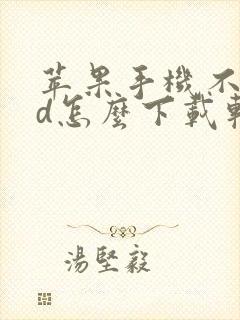 苹果手機不
d怎麼下載
湯堅毅